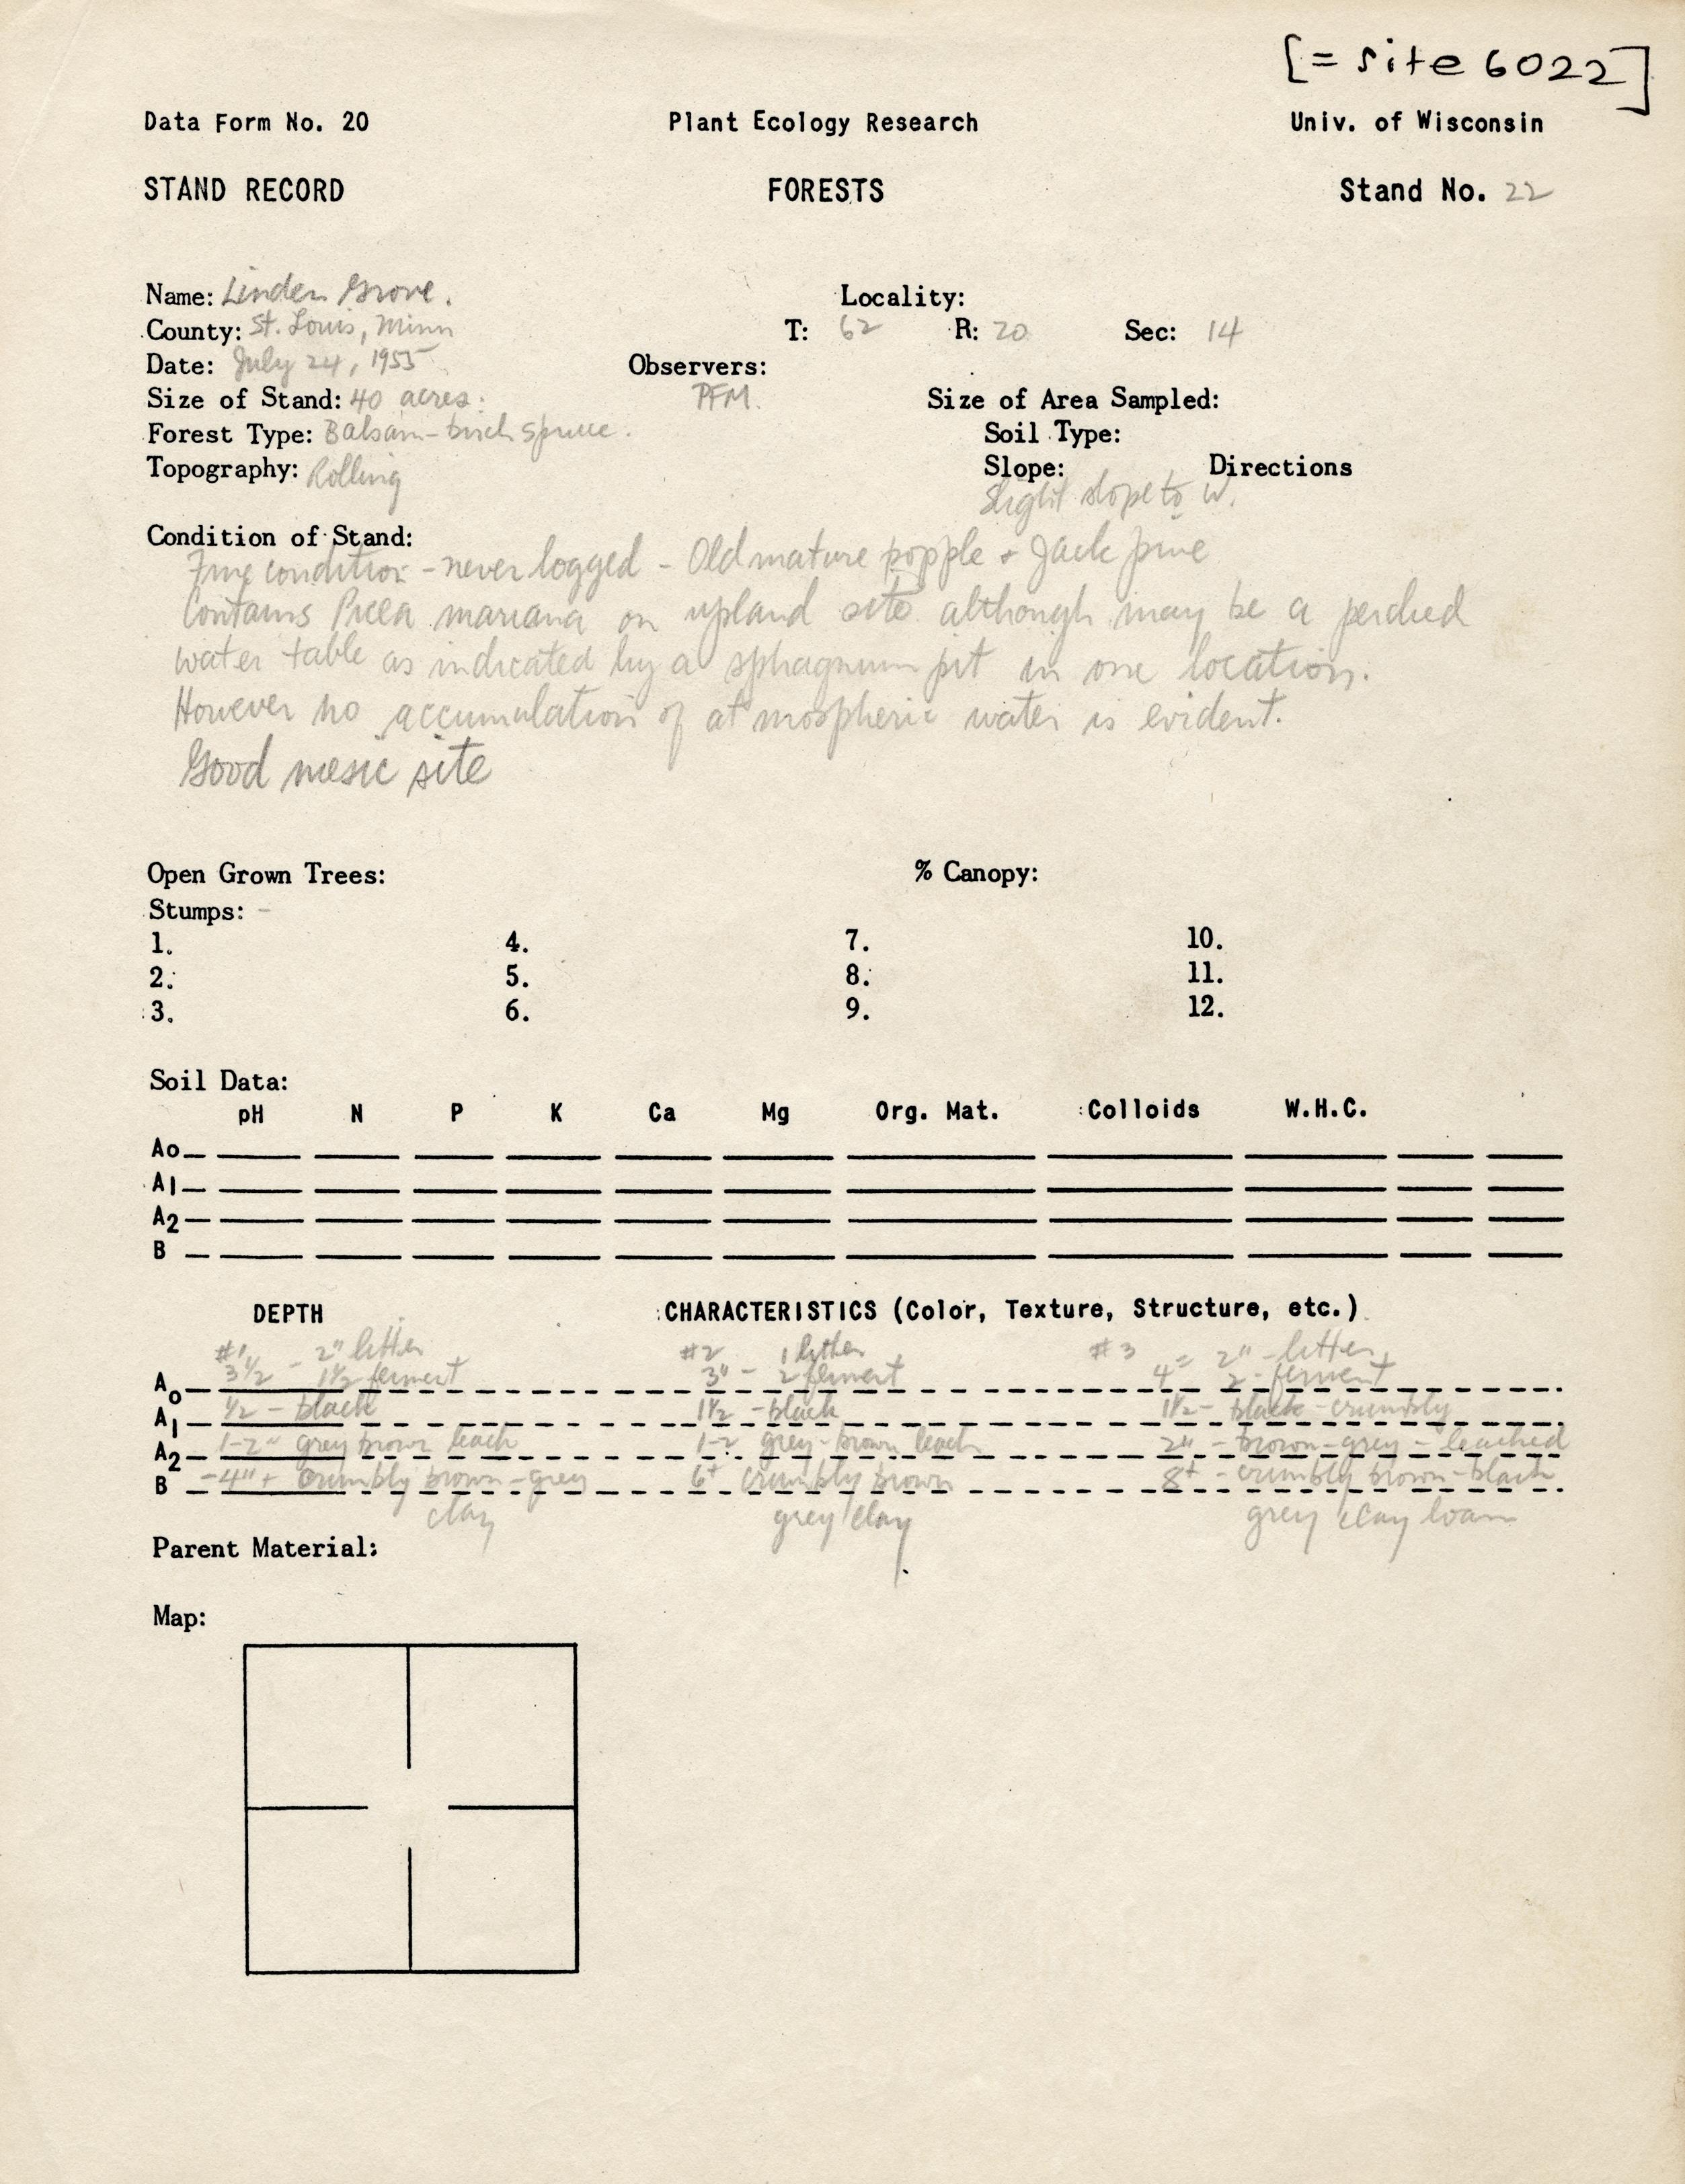 [= site 6022]
Data Form No. 20 Plant Ecology Research Univ. of Wisconsin
STAND RECORD FORESTS Stand No. 22
Name: Linden Grove. Locality:
County: St. Louis, Minn T: 62 R: 20 Sec: 14
Date: July 24, 1955 Observers:
Size of Stand: 40 acres. PFM. Size of Area Sampled:
Forest Type: Balsam-birch spruce. Soil Type:
Topography: Rolling Slope: Directions
Slight slope to W.
Condition of Stand:
Fine condition - never logged - Old mature popple + Jack pine
Contains Picea mariana on upland site although may be a perched
water table as indicated by a sphagnum pit in one location.
However no accumulation of atmospheric water is evident.
Good mesic site
Open Grown Trees: % Canopy:
Stumps: -
1. 4. 7. 10.
2. 5. 8. 11.
3. 6. 9. 12.
Soil Data:
pH N P K Ca Mg Org. Mat. Colloids W.H.C.
Ao
A1
A2
B
DEPTH CHARACTERISTICS (Color, Texture, Structure, etc.)
#1 2" litter #2 1 litter #3 2" - litter
Ao 3 1/2 - 1 1/2 ferment 3" - 2 ferment 4" 2 - ferment
A1 1/2 - black 1 1/2 - black 1 1/2 - black - crumbly
A2 1-2" grey brown leach 1-2 grey-brown leach 2" - brown-grey - leached
B -4"+ crumbly brown-grey 6+ crumbly brown 8+ - crumbly brown-black
clay grey clay grey clay loam
Parent Material:
Map: